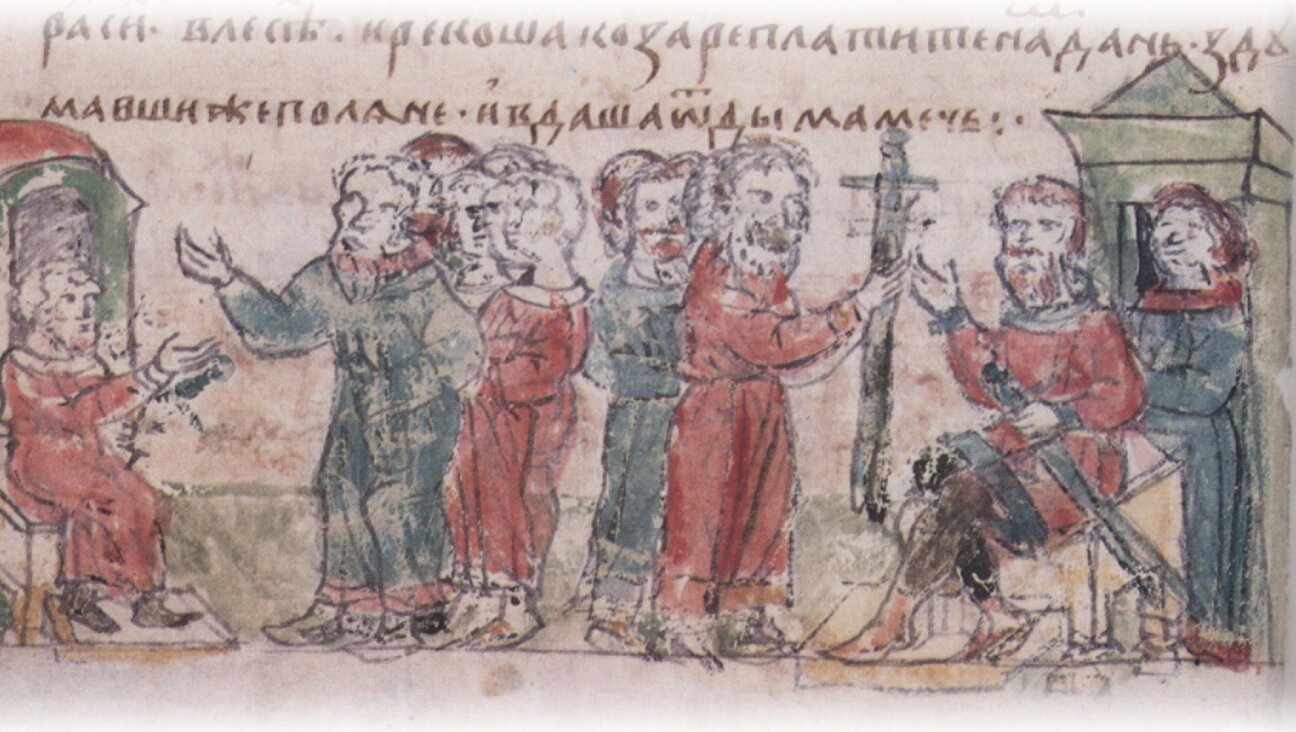 расн· влесѣ· и рекоша козареплатитенадань·зду
мавшижеполѧне·и҆вдашаѿдымамечь:·